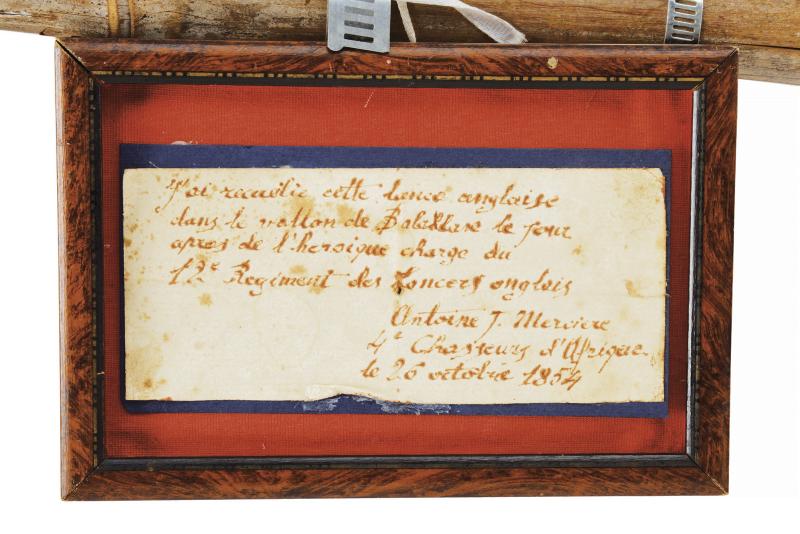 J'ai recuelie cette lance anglaise
dans le vallon de Balaklave le jour
apres de l'heroique charge du
12e Regiment des Lancers anglais
Antoine J. Merciere
4e Chasseurs d'Afrique.
le 26 octobre 1854